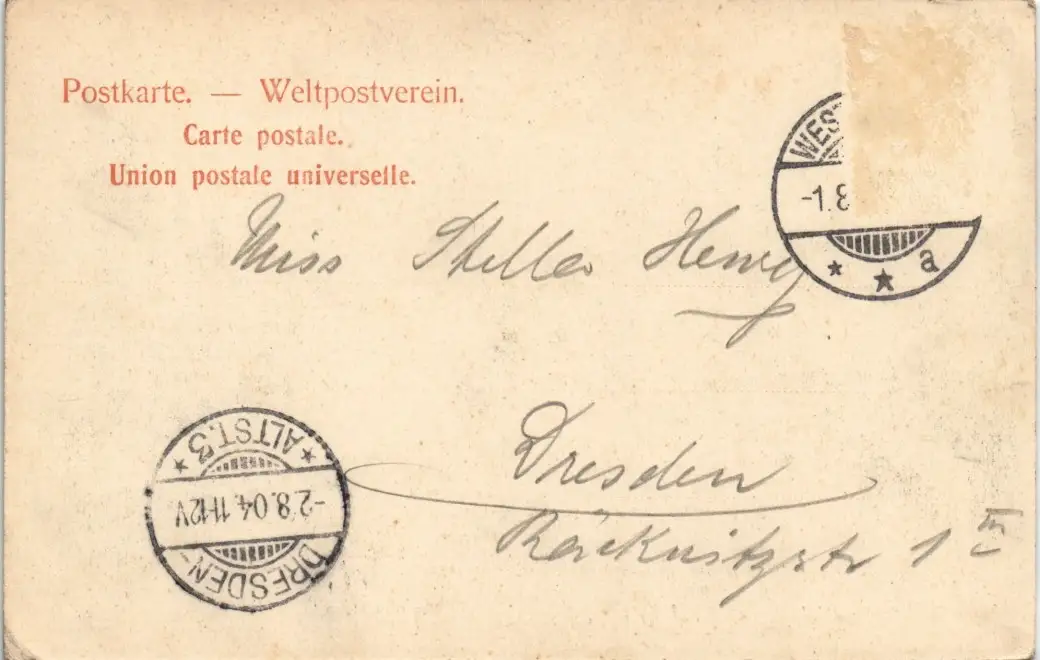 Postkarte. — Weltpostverein.
Carte postale.
Union postale universelle.
WES
-1.8
* * a
Miss Stella
Dresden
Räcknitzstr 1 III
DRESDEN-
-2.8.04.11-12V
* ALTST.3 *